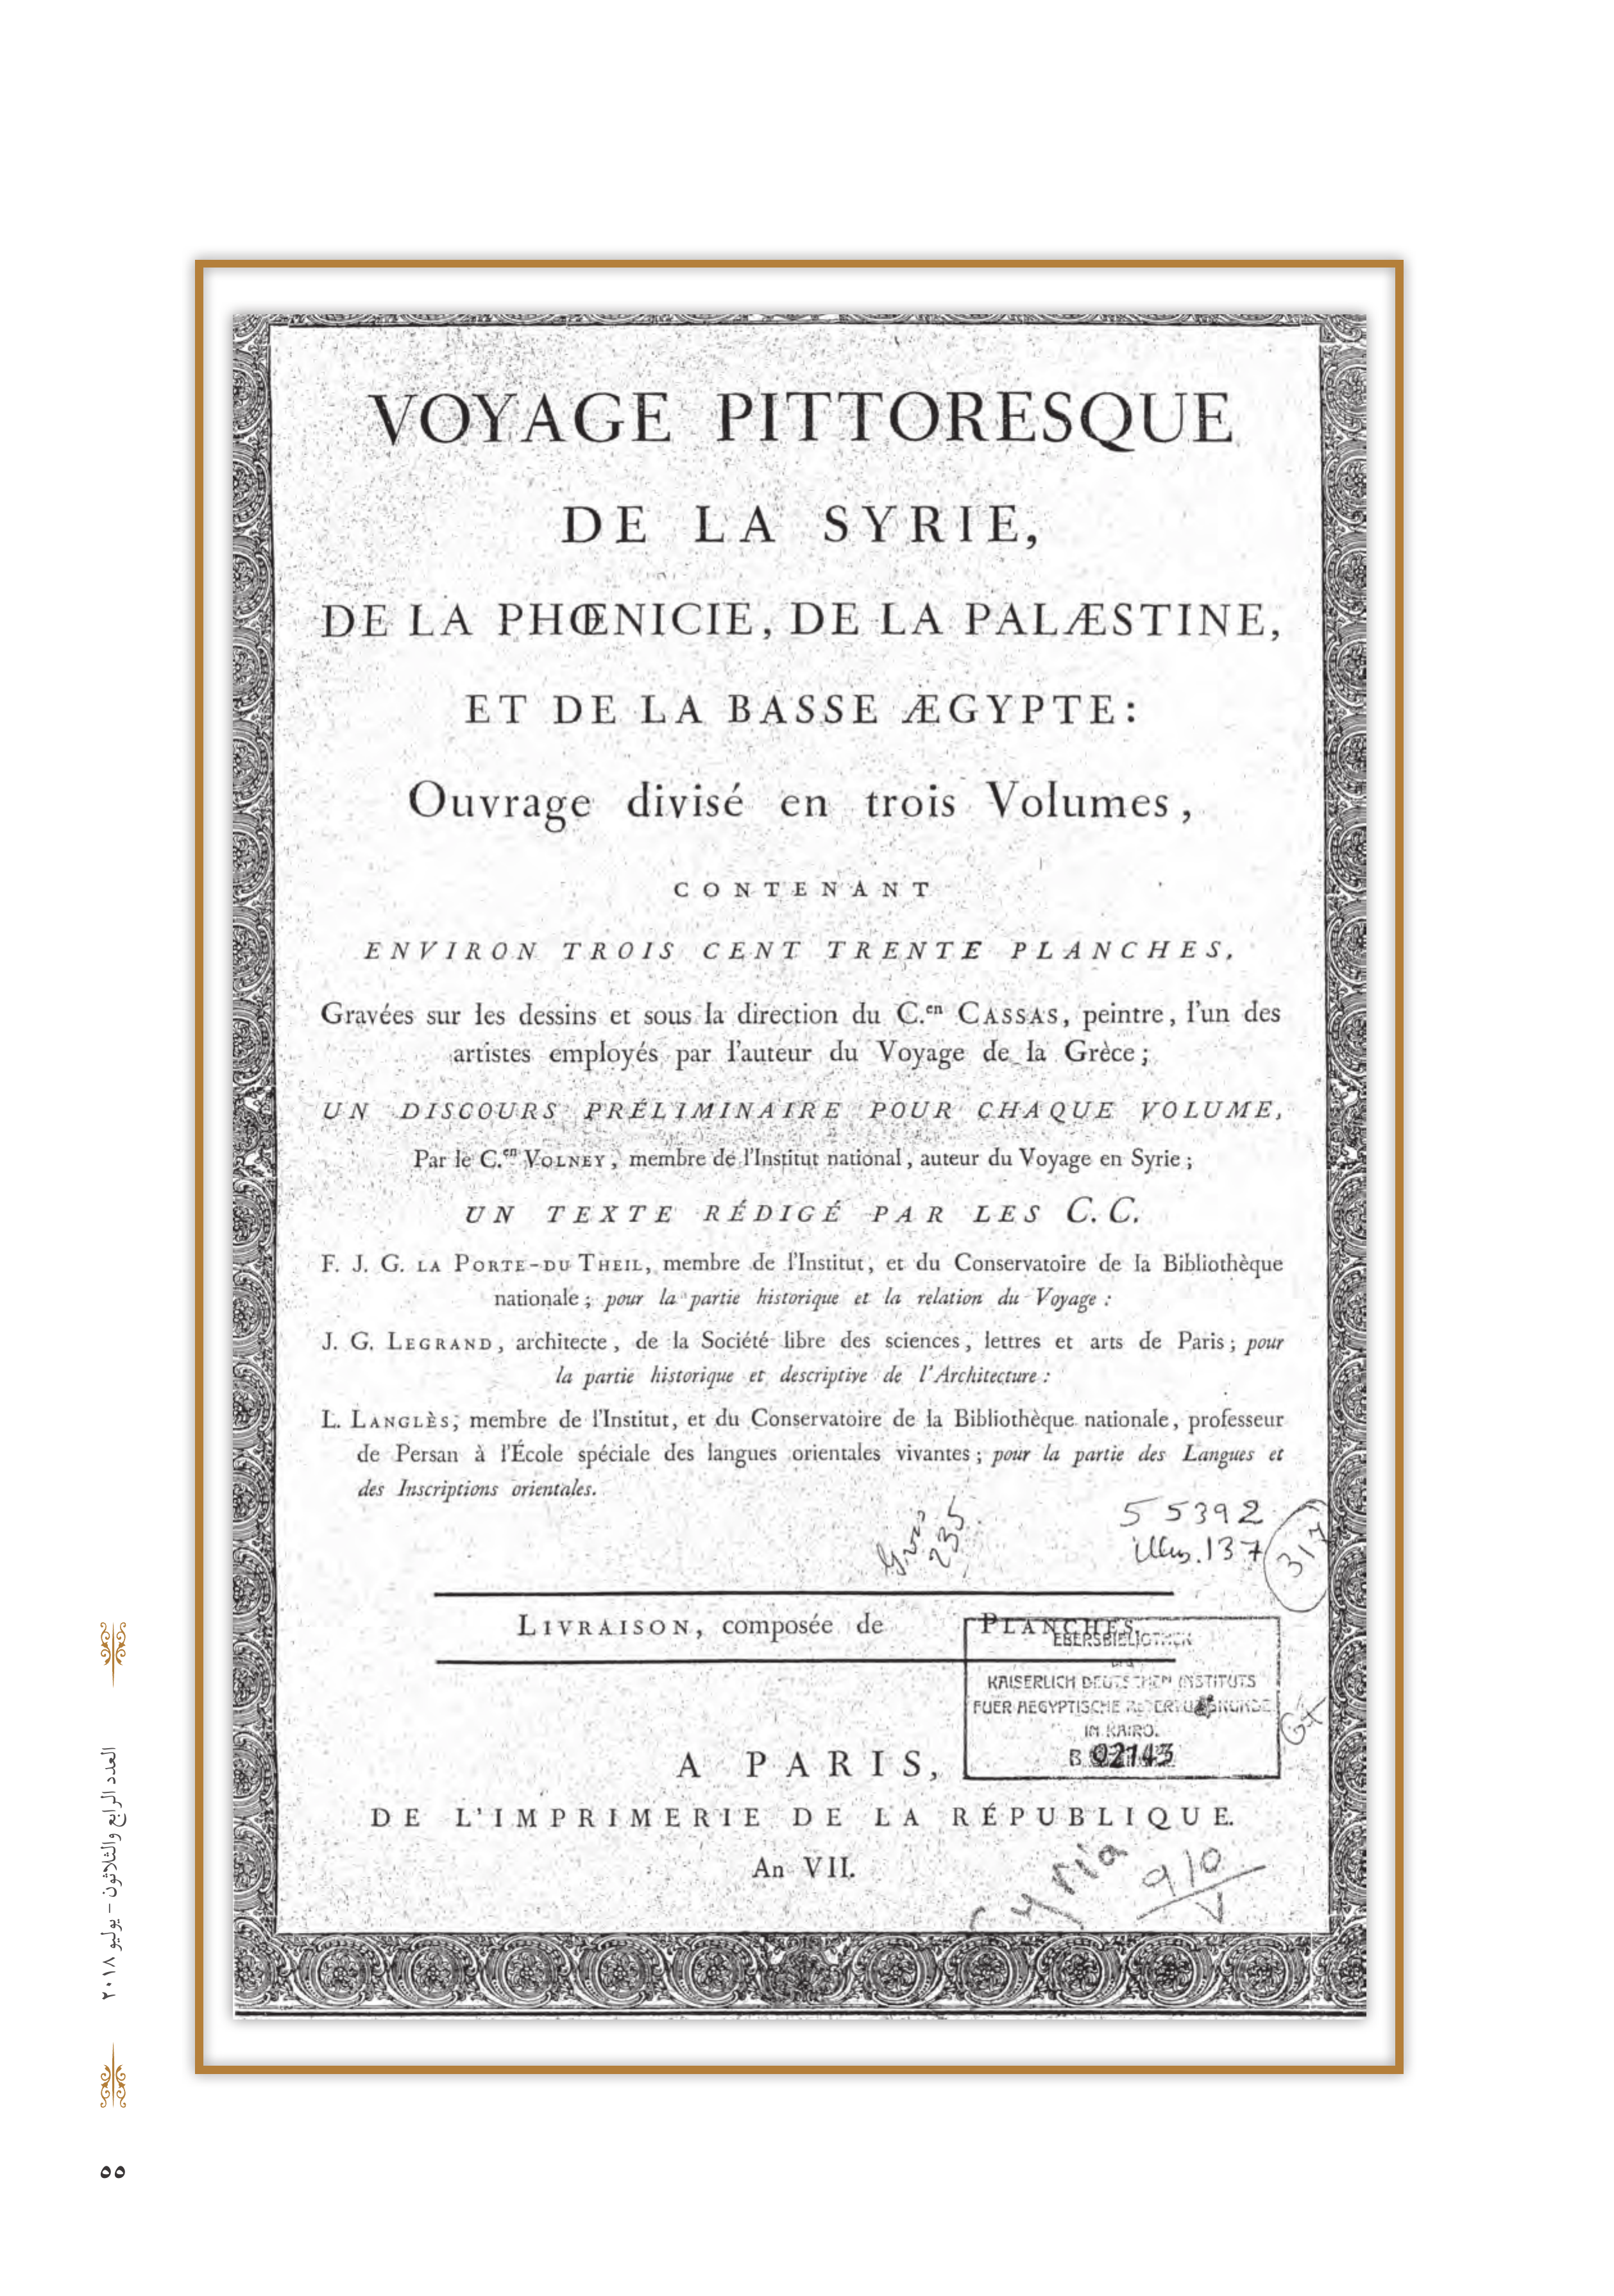 VOYAGE PITTORESQUE
DE LA SYRIE,
DE LA PHŒNICIE, DE LA PALÆSTINE,
ET DE LA BASSE ÆGYPTE:
Ouvrage divisé en trois Volumes,
CONTENANT
ENVIRON TROIS CENT TRENTE PLANCHES,
Gravées sur les dessins et sous la direction du C.en CASSAS, peintre, l'un des
artistes employés par l'auteur du Voyage de la Grèce;
UN DISCOURS PRÉLIMINAIRE POUR CHAQUE VOLUME,
Par le C.en VOLNEY, membre de l'Institut national, auteur du Voyage en Syrie;
UN TEXTE RÉDIGÉ PAR LES C. C.
F. J. G. LA PORTE-DU THEIL, membre de l'Institut, et du Conservatoire de la Bibliothèque
nationale; pour la partie historique et la relation du Voyage:
J. G. LEGRAND, architecte, de la Société libre des sciences, lettres et arts de Paris; pour
la partie historique et descriptive de l'Architecture:
L. LANGLÈS, membre de l'Institut, et du Conservatoire de la Bibliothèque nationale, professeur
de Persan à l'École spéciale des langues orientales vivantes; pour la partie des Langues et
des Inscriptions orientales.
235
55392
illus. 137
317
LIVRAISON, composée de PLANCHES.
EBERSBIBLIOTHEK
KAISERLICH DEUTSCHEN INSTITUTS
FUER AEGYPTISCHE ALTERTUMSKUNDE
IN KAIRO.
B 02143
A PARIS,
DE L'IMPRIMERIE DE LA RÉPUBLIQUE.
An VII.
Syria
910
V
العدد الرابع والثلاثون – يوليو ٢٠١٨
٥٥